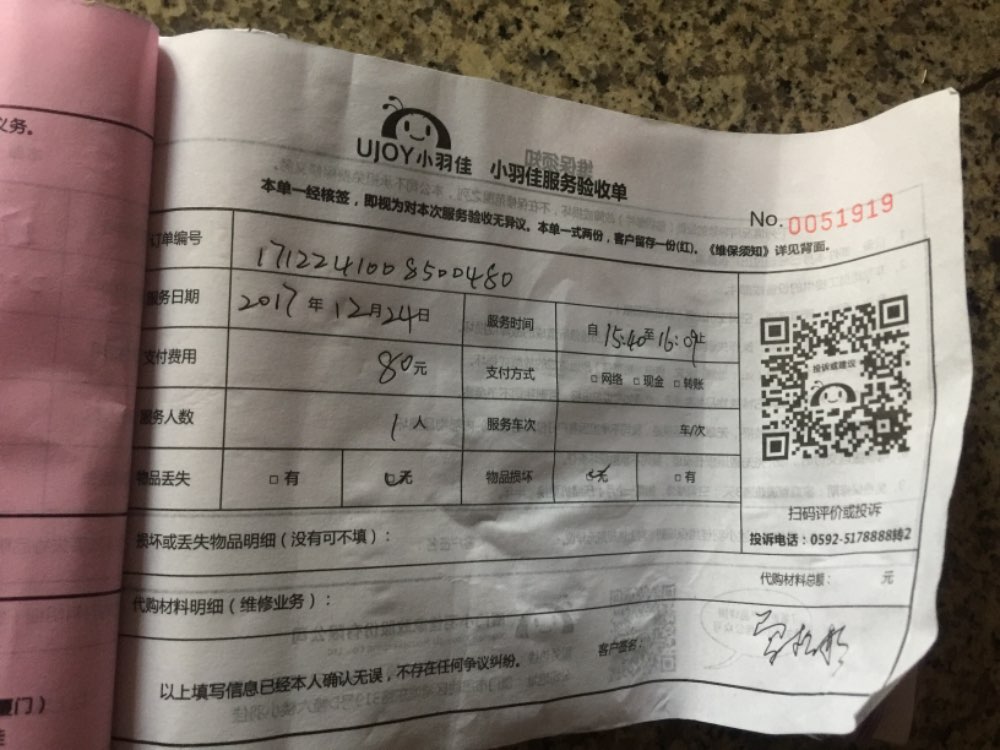 义务。
UJOY小羽佳 小羽佳服务验收单
本单一经核签，即视为对本次服务验收无异议。本单一式两份，客户留存一份(红)。《维保须知》详见背面。
No. 0051919
订单编号 1712241008500480
服务日期 2017年12月24日 服务时间 自15:40至16:09止
支付费用 80元 支付方式 □网络 □现金 □转账
服务人数 1人 服务车次 车/次
物品丢失 □有 □无 物品损坏 □无 □有
投诉或建议
扫码评价或投诉
投诉电话：0592-5178888转2
损坏或丢失物品明细（没有可不填）：
代购材料明细（维修业务）：
代购材料总额： 元
客户签名：
以上填写信息已经本人确认无误，不存在任何争议纠纷。
厦门）